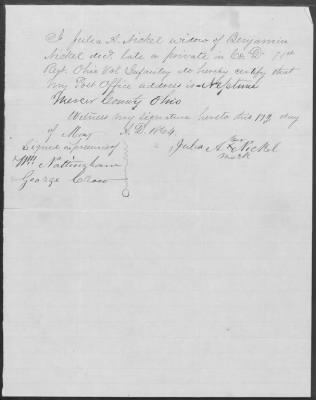 I Julia A. Nickel widow of Benjamin
Nickel decd. late a private in Co. D 71st
Regt. Ohio Vol Infantry do hereby certify that
my Post Office address is Neptune
Mercer County Ohio
Witness my signature hereto this 17th day
of May A.D. 1864.
Signed in presence of
Julia A. her x Nickel
mark
Wm Nottingham
George Crow